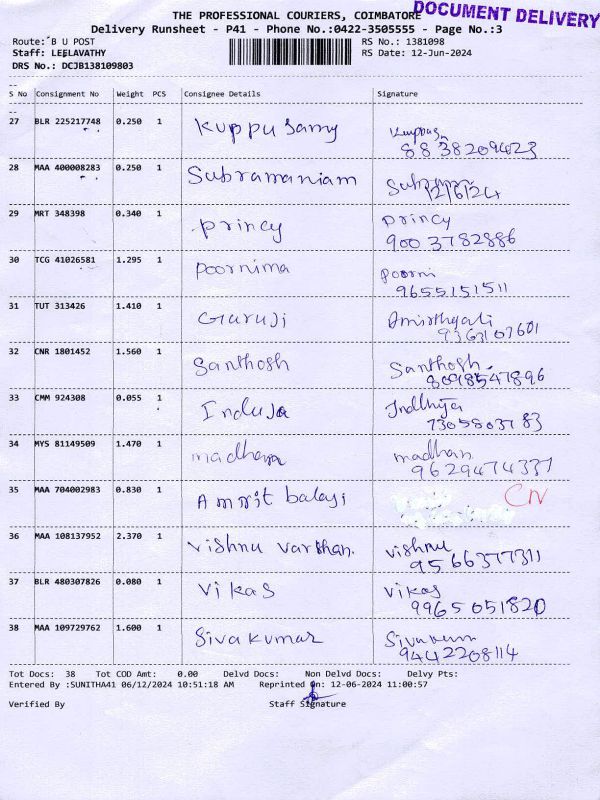 THE PROFESSIONAL COURIERS, COIMBATORE
DOCUMENT DELIVERY
Delivery Runsheet - P41 - Phone No.:0422-3505555 - Page No.:3
Route: B U POST
Staff: LEELAVATHY
DRS No.: DCJB138109803
RS No.: 1381098
RS Date: 12-Jun-2024
S No Consignment No Weight PCS Consignee Details Signature
27 BLR 225217748 0.250 1 Kuppusamy
8838209423
28 MAA 400008283 0.250 1 Subramaniam
12/6/24
29 MRT 348398 0.340 1 princy princy
9003782886
30 TCG 41026581 1.295 1 poornima poorni
9655151511
31 TUT 313426 1.410 1 Guruji
9363107601
32 CNR 1801452 1.560 1 Santhosh Santhosh.
8098547896
33 CMM 924308 0.055 1 Induja
7305803783
34 MYS 81149509 1.470 1 madhan madhan
9629474337
35 MAA 704002983 0.830 1 Amrit balaji CN
36 MAA 108137952 2.370 1 vishnu varthan. vishnu
9566377311
37 BLR 480307826 0.080 1 vikas vikas
9965051820
38 MAA 109729762 1.600 1 Sivakumar
9442208114
Tot Docs: 38 Tot COD Amt: 0.00 Delvd Docs: Non Delvd Docs: Delvy Pts:
Entered By :SUNITHA41 06/12/2024 10:51:18 AM Reprinted On: 12-06-2024 11:00:57
Verified By Staff Signature